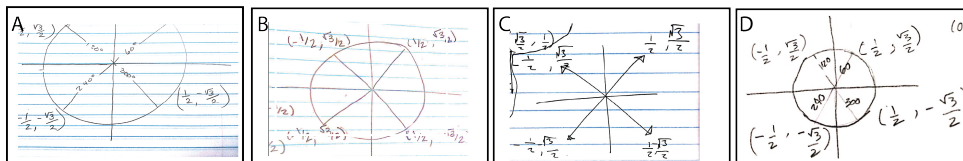 A
√3/2)
120°
60°
240°
300°
-1/2, -√3/2)
(1/2, -√3/2)
B
(-1/2, √3/2)
(1/2, √3/2)
C
√3/2, 1/2)
-1/2, √3/2
1/2, √3/2
-1/2, -√3/2
1/2 -√3/2
D
(-1/2, √3/2)
(1/2, √3/2)
120
60
240
300
(-1/2, -√3/2)
(1/2, -√3/2)
(0